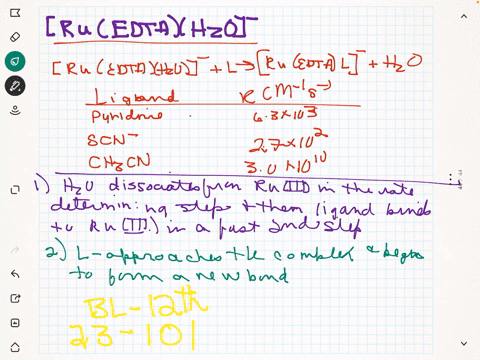 [Ru(EDTA)(H2O]⁻
[Ru(EDTA)(H2O)]⁻ + L → [Ru(EDTA)L]⁻ + H2O
Ligand K (M⁻¹s⁻)
Pyridine 6.3×10³
SCN⁻ 2.7×10²
CH3CN 3.0×10¹⁰
1) H2O dissociates from Ru(III) in the rate
determining step & then ligand binds
to Ru(III) in a fast 2nd step
2) L-approaches the complex & begins
to form a new bond
BL-12th
23-101